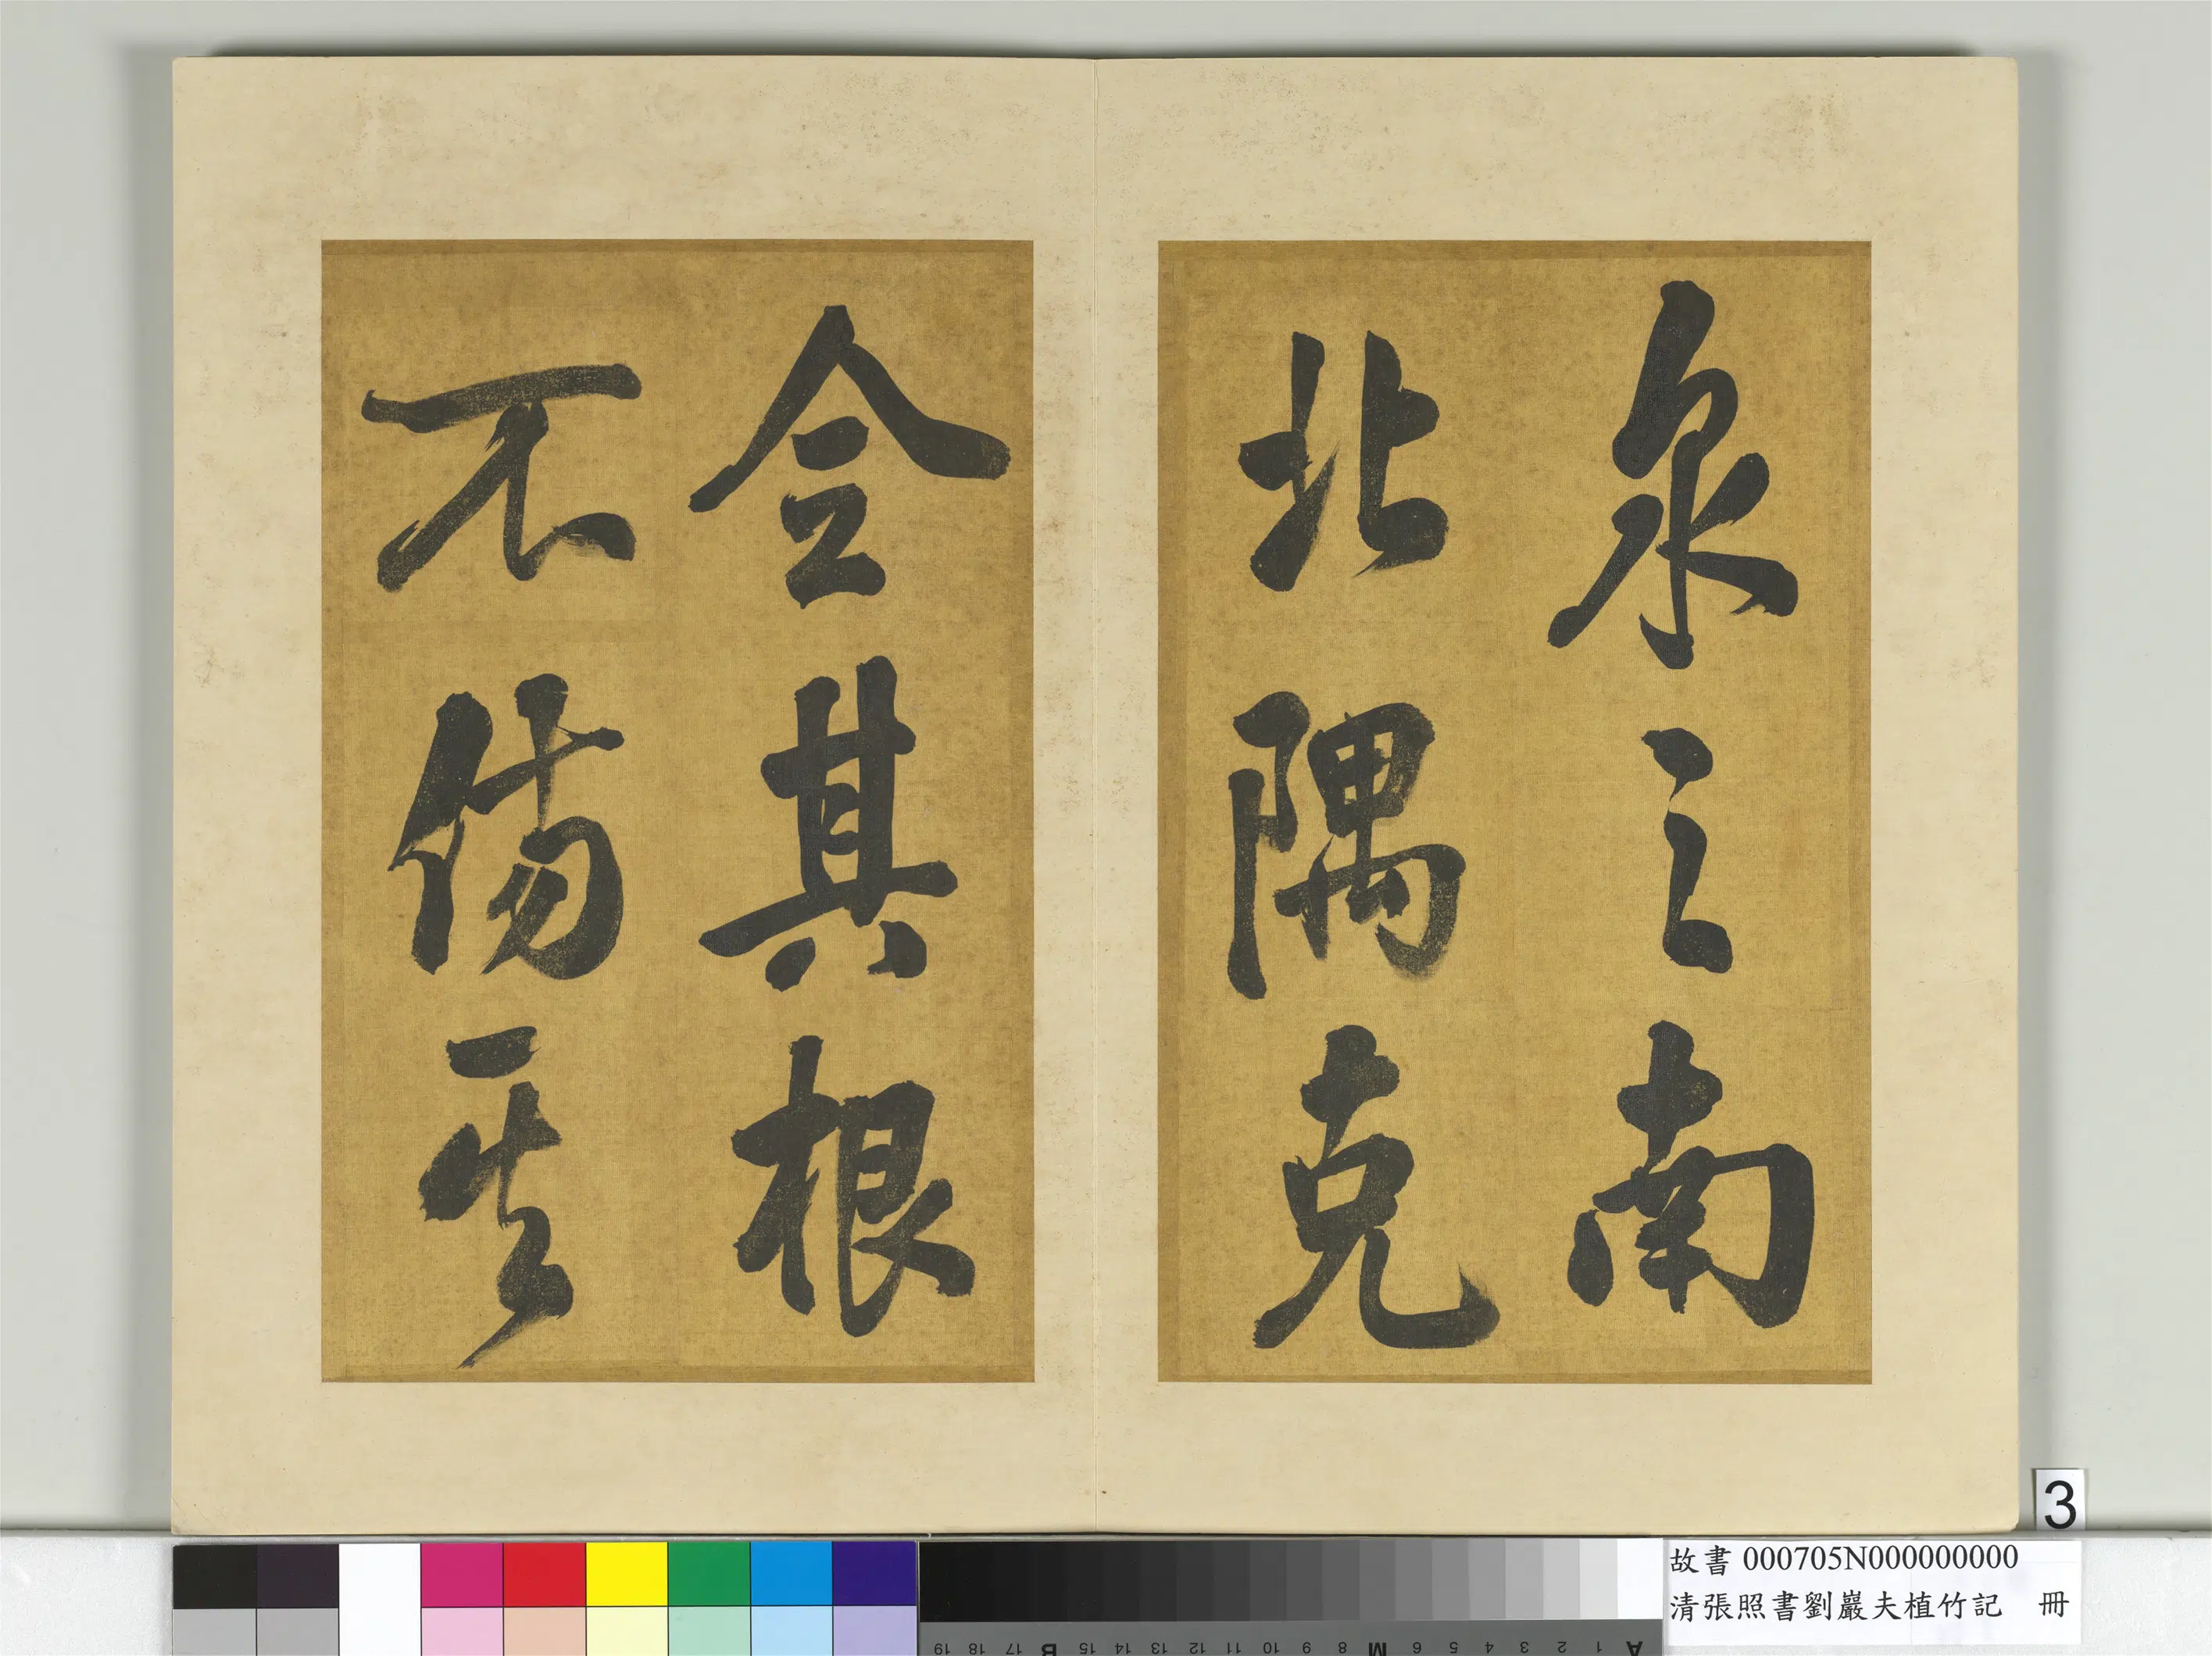 泉之南
北隅克
全其根
不傷其
3
故書 000705N000000000
清張照書劉巖夫植竹記 冊
A 1 2 3 4 5 6 M 8 9 10 11 12 13 14 15 B 17 18 19